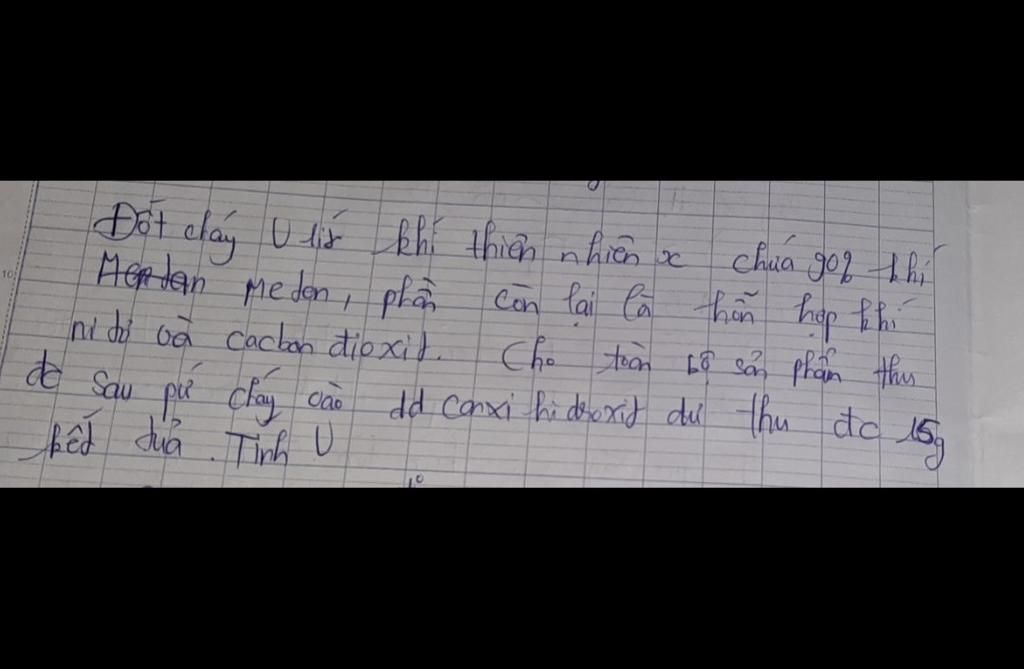 Đốt cháy V lít khí thiên nhiên x chứa 90% khí
Medan Meden, phần còn lại là hỗn hợp khí
ni tơ và cacbon đioxit. Cho toàn bộ sản phẩm thu
đc sau pứ cháy vào dd canxi hiđroxit dư thu đc 15g
kết tủa. Tính V
10